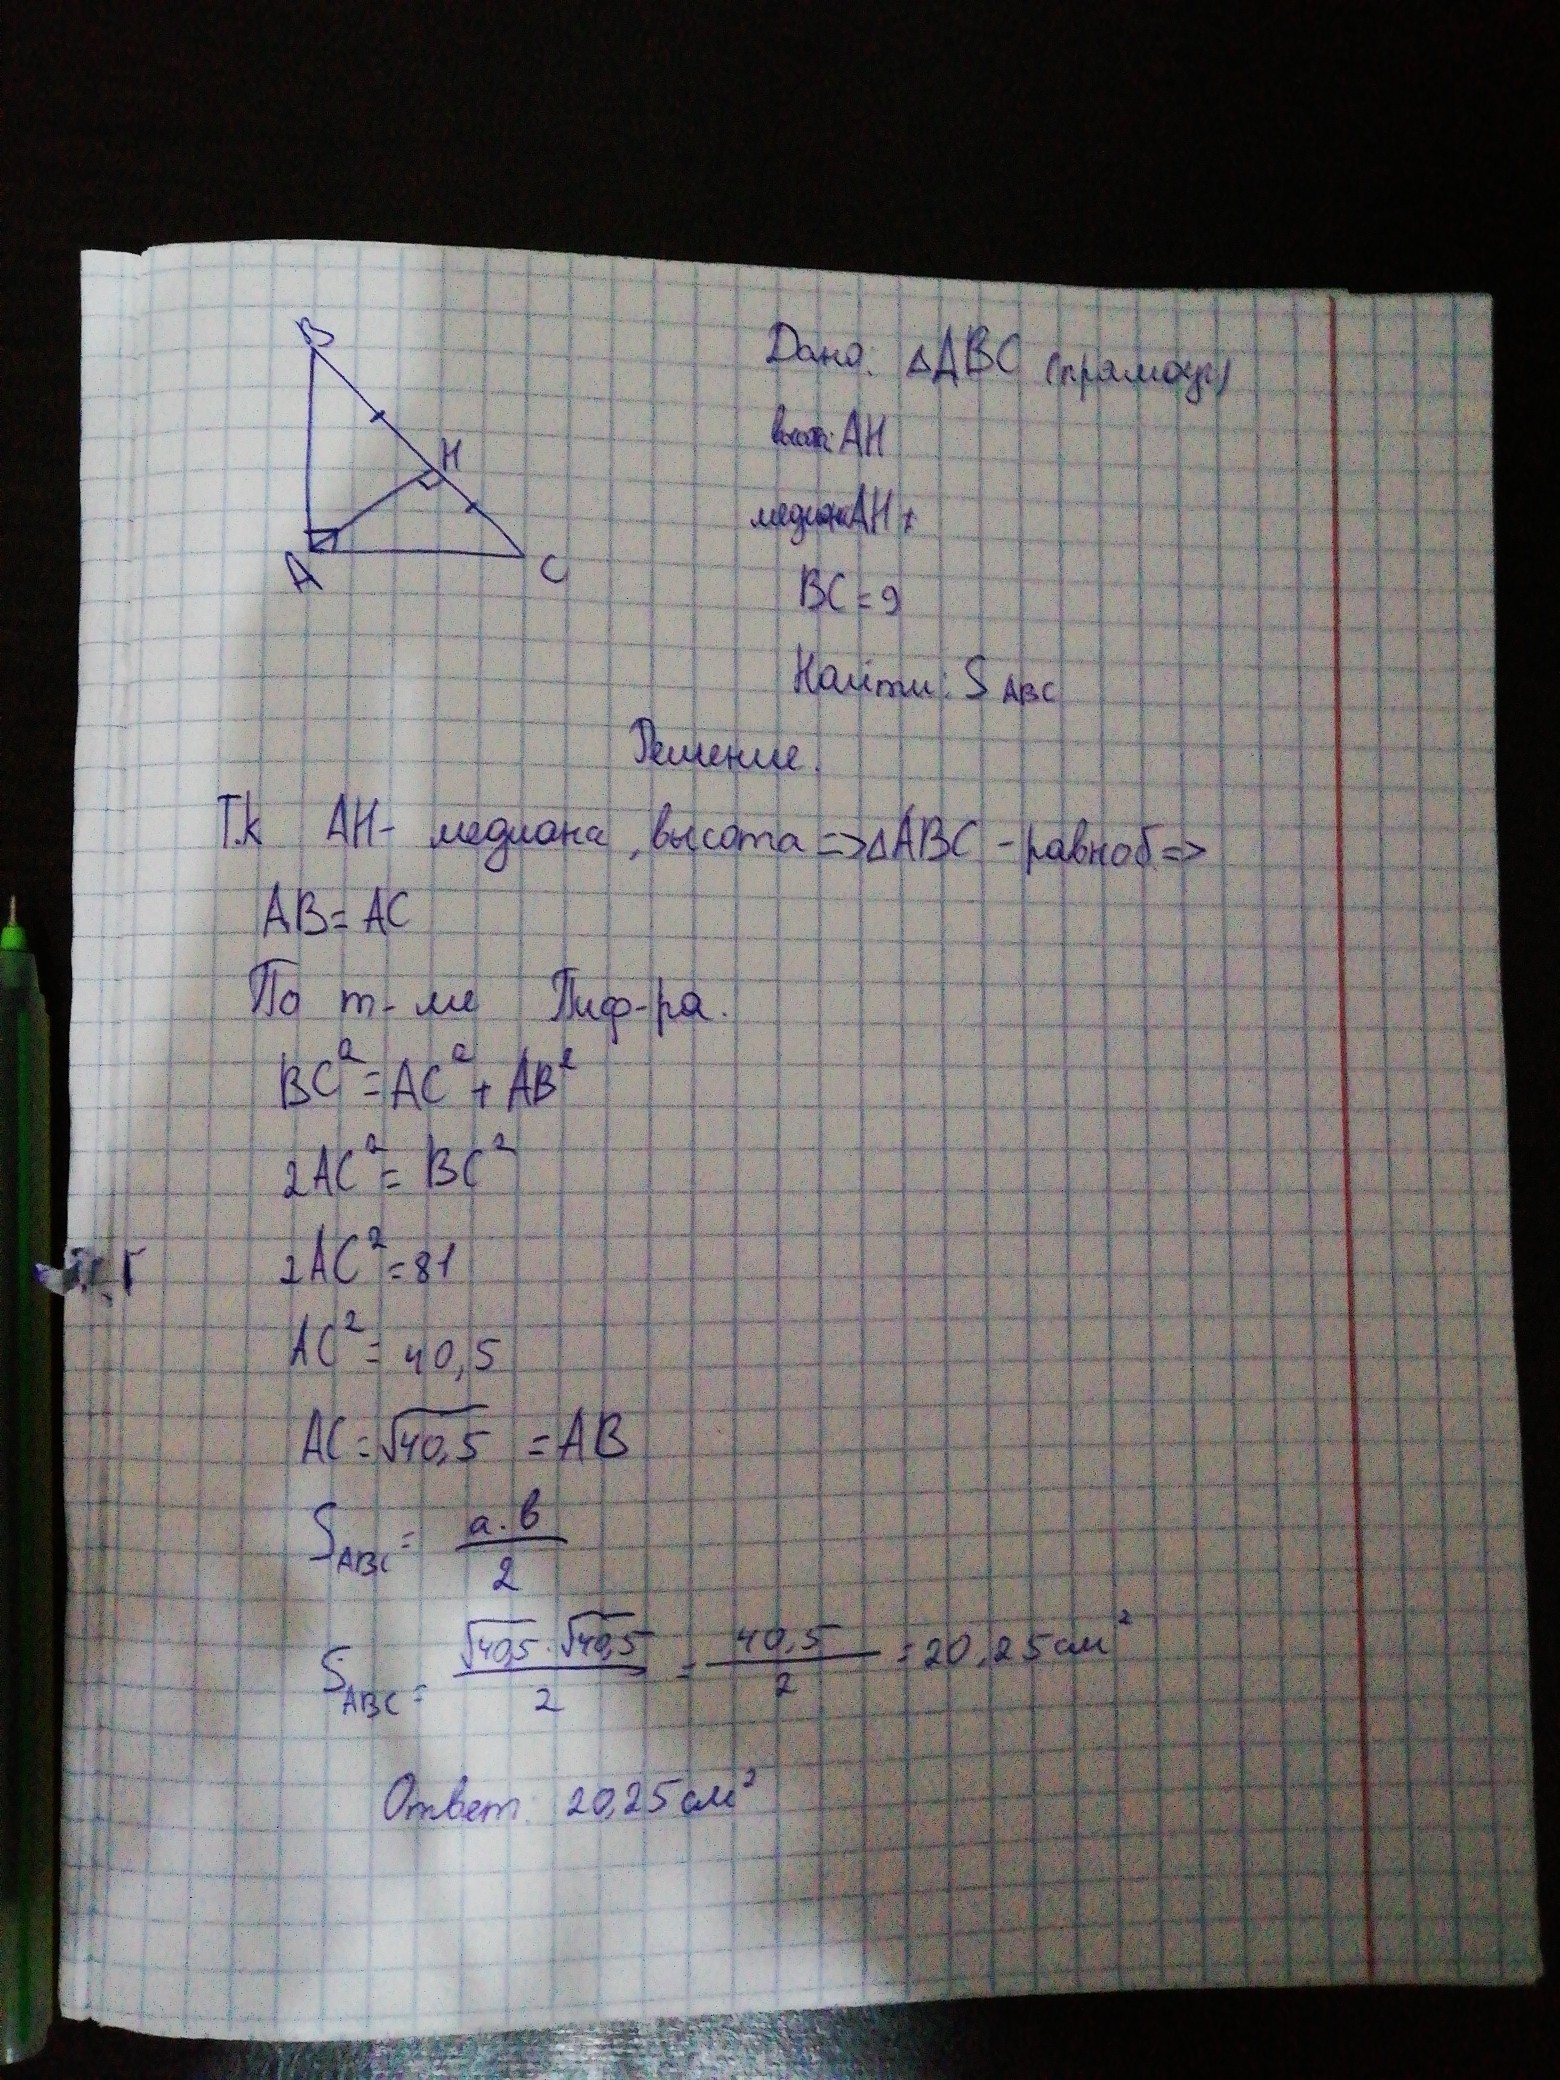 B
H
A
C
Дано: △ABC (прямоуг)
высота: AH
медиана AH
BC = 9
Найти: S ABC
Решение.
Т.к AH - медиана, высота => △ABC - равноб =>
AB = AC
По т-ме Пиф-ра.
BC² = AC² + AB²
2AC² = BC²
2AC² = 81
AC² = 40,5
AC = √40,5 = AB
S ABC = a·b / 2
S ABC = √40,5 · √40,5 / 2 = 40,5 / 2 = 20,25 см²
Ответ: 20,25 см²